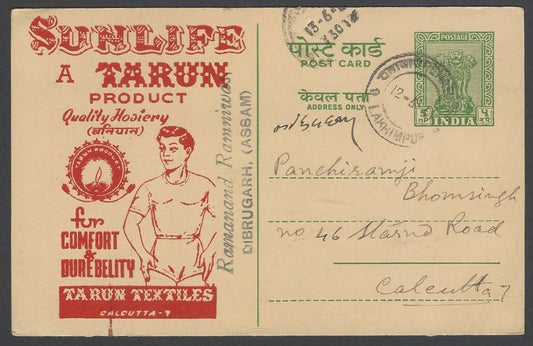 SUNLIFE
A TARUN
PRODUCT
Quality Hosiery
(बनियान)
TARUN PRODUCT
for
COMFORT
&
DURE BELITY
TARUN TEXTILES
CALCUTTA-7
Ramanand Ramniwas
DIBRUGARH, (ASSAM)
13-6
1301
पोस्ट कार्ड
POST CARD
केवल पता
ADDRESS ONLY
POSTAGE
INDIA
12-6
LAKHIMPUR
Panchiramji
Bhomsingh
no 46 Strand Road
Calcutta 7